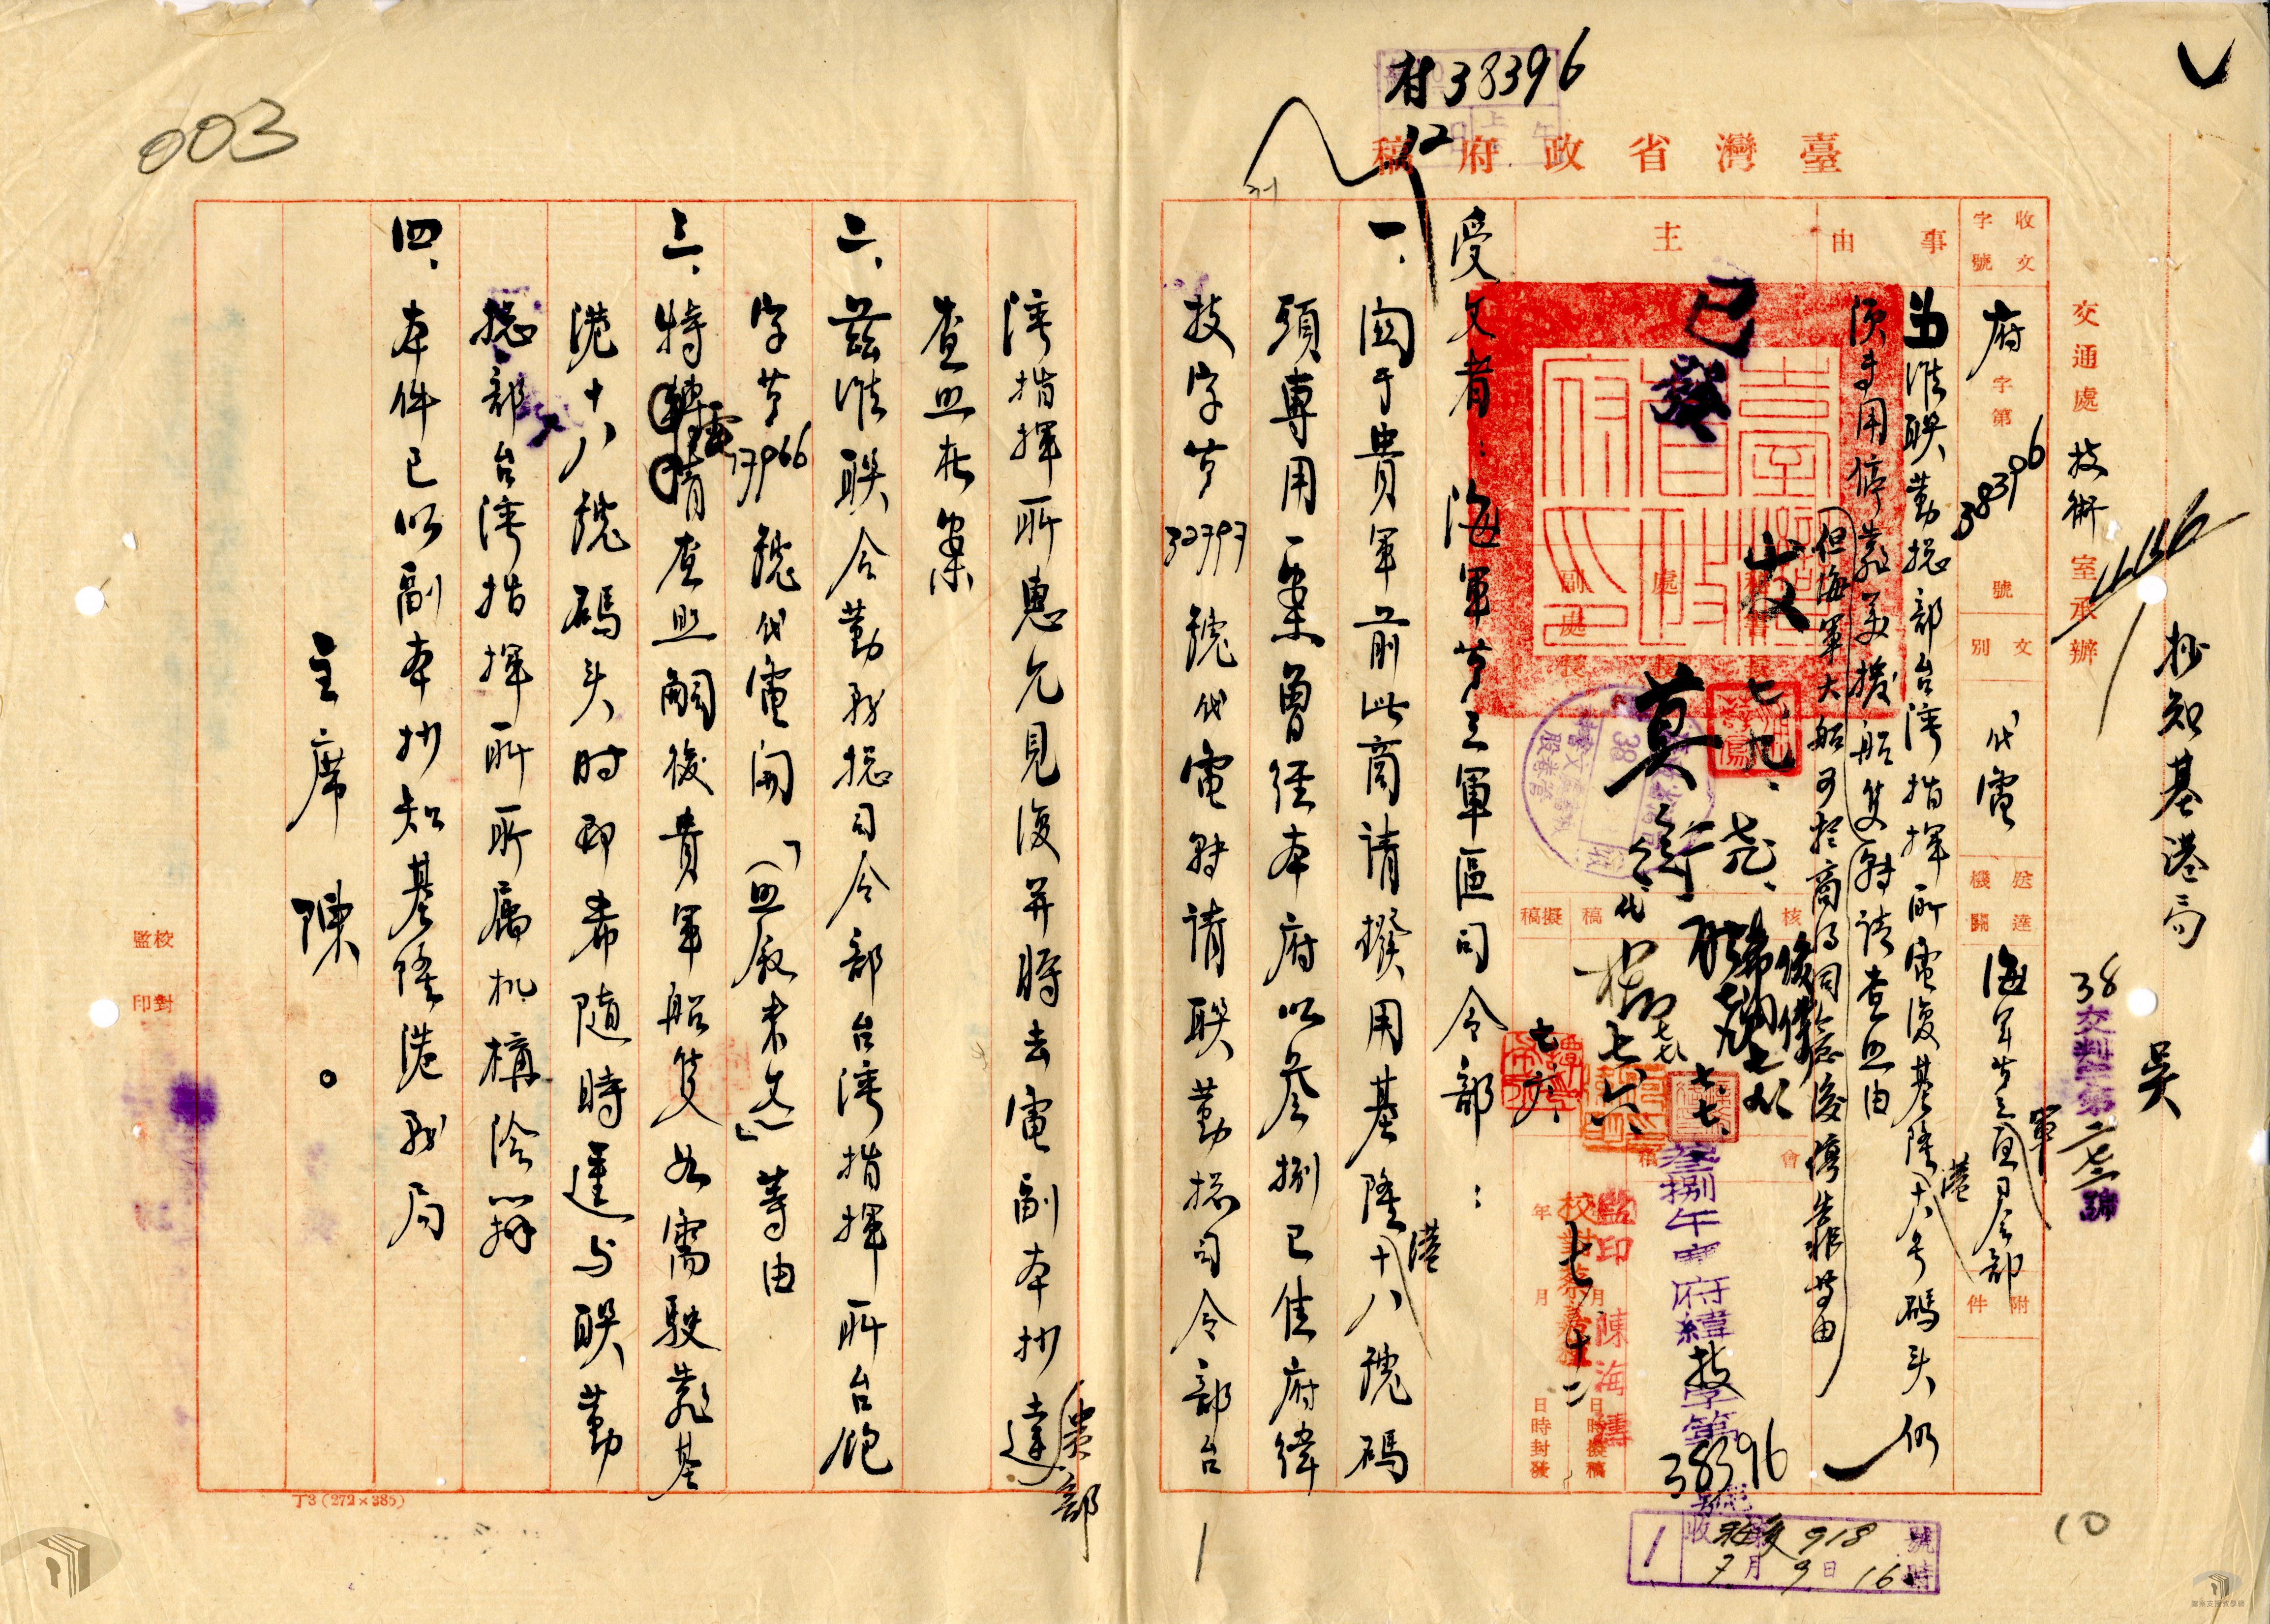 003
府38396
12
臺灣省政府稿
抄知基港局
吳
交通處技術室承辦
收文字號
府字第38396號
文別
代電
送達機關
海軍第三軍區司令部
附件
事由
為准聯勤總部台灣指揮所電復基隆港十八号碼头仍
須專用停靠美援船隻
但海軍大船可於商得同意後停靠等由
轉請查照由
主
已發
受文者：海軍第三軍區司令部：
一、關于貴軍前此商請撥用基隆港十八號碼
頭專用一案曾經本府以叄捌已佳府緯
技字第32797號代電轉請聯勤總司令部台
灣指揮所惠允見復并將去電副本抄達貴部
查照在案
二、茲准聯合勤務總司令部台灣指揮所台砲
字第17966號代電開「(照敘來文)」等由
三、特電請查照嗣後貴軍船隻如需駛靠基
港十八號碼头时即希隨時逕与联勤
總部台灣指揮所所屬机構洽辦
四、本件已以副本抄知基隆港務局
主席 陳 。
校對
監印
監印 陳海濤
叁捌午 府緯技字第38396號
年 月 日 時封發
月 日 時擬稿
七 十二
收 918 號
7月9日16時
丁3(272×385)
10